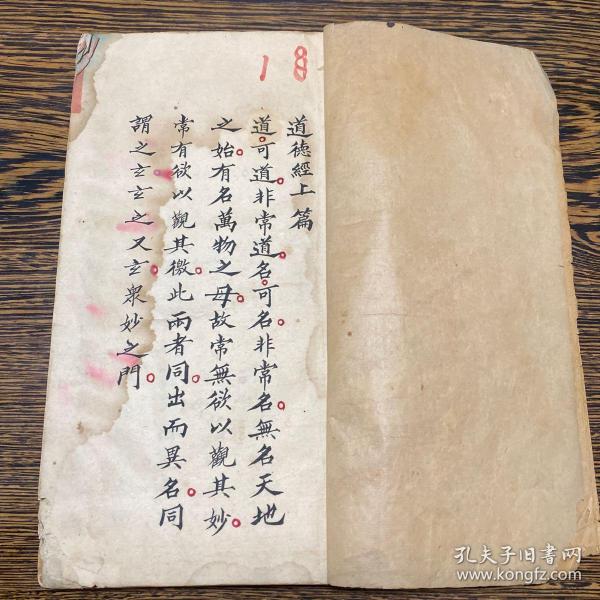 18
道德經上篇
道可道非常道名可名非常名無名天地
之始有名萬物之母故常無欲以觀其妙
常有欲以觀其徼此兩者同出而異名同
謂之玄玄之又玄衆妙之門
孔夫子旧书网
www.kongfz.com